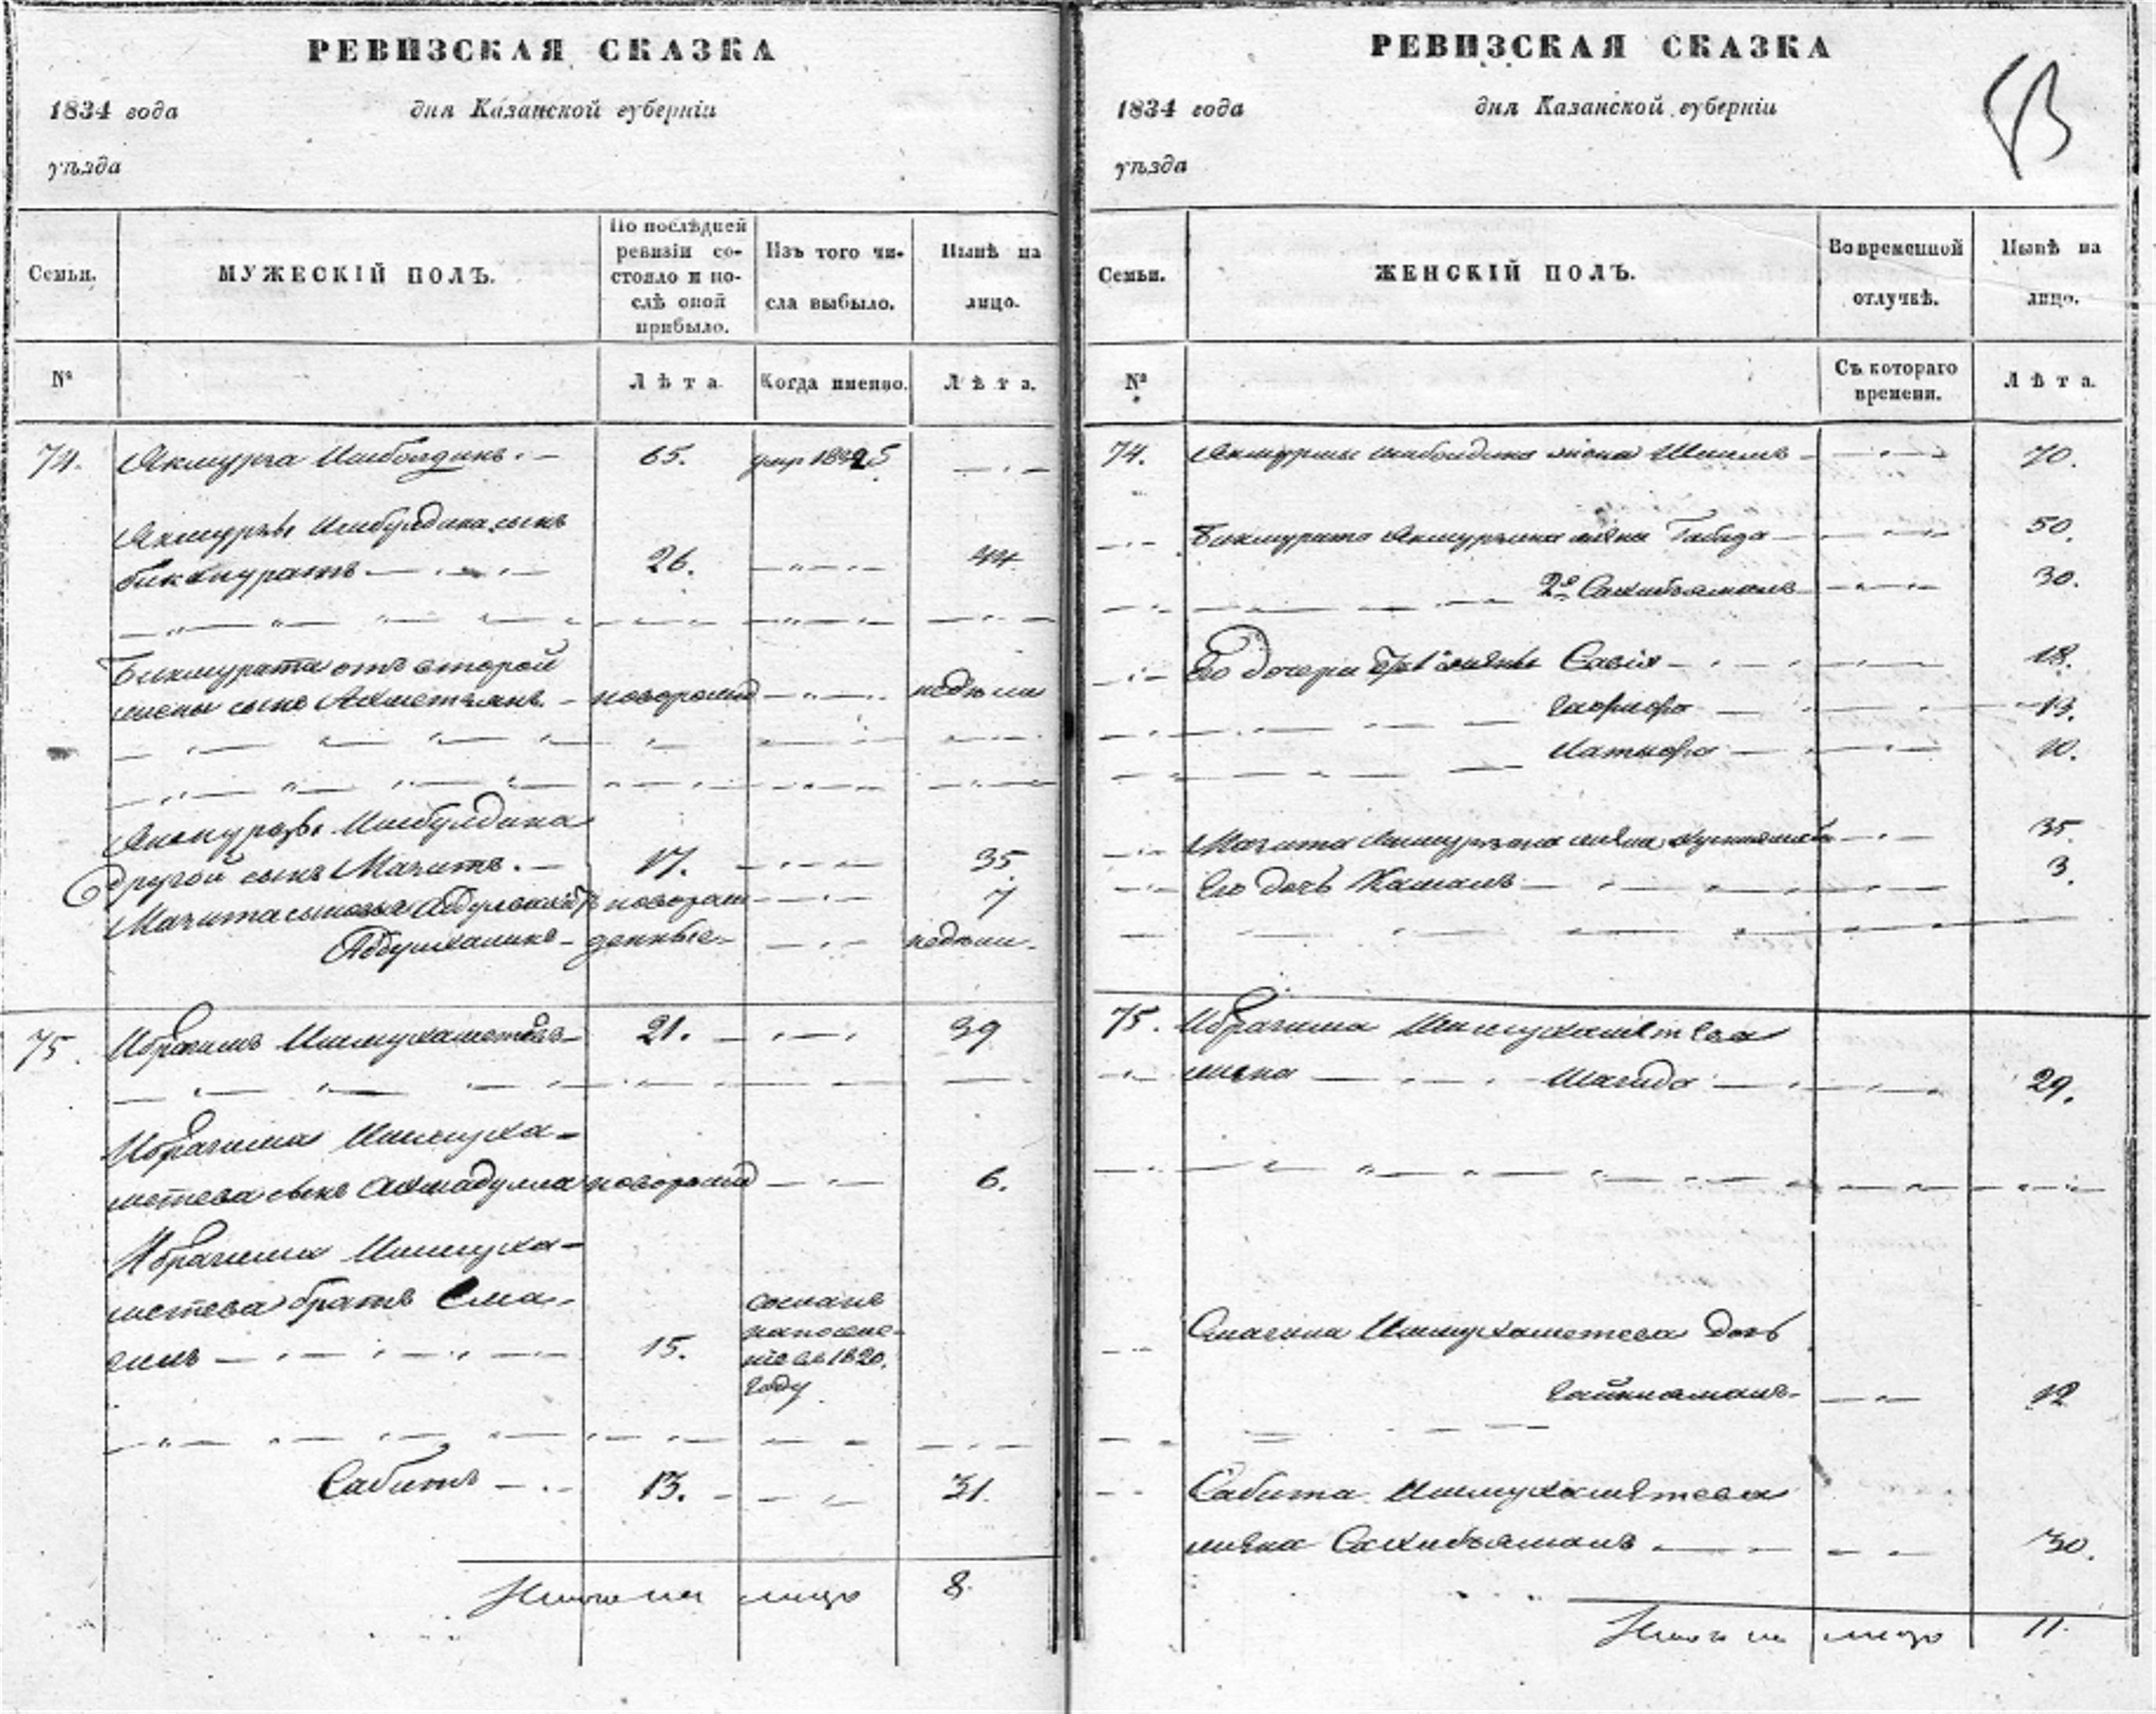 РЕВИЗСКАЯ СКАЗКА
1834 года дня Казанской губерніи
уѣзда
Семьи. МУЖЕСКІЙ ПОЛЪ. По послѣдней ревизіи состояло и послѣ оной прибыло. Изъ того числа выбыло. Нынѣ на лицо.
№ Лѣта. Когда именно. Лѣта.
74. Акмурза Ишбулдинъ. 65. умр 1825
Акмурзы Ишбулдина сынъ
Бикмуратъ 26. 44
Бикмурата отъ второй
жены сынъ Ахметзянъ. новорожд недѣли
Акмурзы Ишбулдина
другой сынъ Мазитъ. 17. 35.
Мазита сыновья новорож 7
денные недѣли.
75. Ибрагимъ Ишмухаметевъ 21. 39
Ибрагима Ишмуха-
метева сынъ Ахмадулла новорожд 6.
Ибрагима Ишмуха-
метева братъ Сма-
гилъ 15. сосланъ на поселе-
ніе въ 1820.
году
Сабитъ 13. 31.
Итого на лицо 8.
РЕВИЗСКАЯ СКАЗКА
1834 года дня Казанской губерніи
уѣзда
Семьи. ЖЕНСКІЙ ПОЛЪ. Во временной отлучкѣ. Нынѣ на лицо.
№ Съ котораго времени. Лѣта.
74. Акмурзы Ишбулдина жена 70.
Бикмурата Акмурзина жена 50.
2я Сахибзямалъ 30.
Его дочери от 1 жены Савія 18.
13.
10.
Мазита Акмурзина жена 35.
Его дочь Камалъ 3.
75. Ибрагима Ишмухаметева
жена Шагида 29.
Смагила Ишмухаметева дочь
12
Сабита Ишмухаметева
жена Сахибзямалъ 30.
Итого на лицо 11.